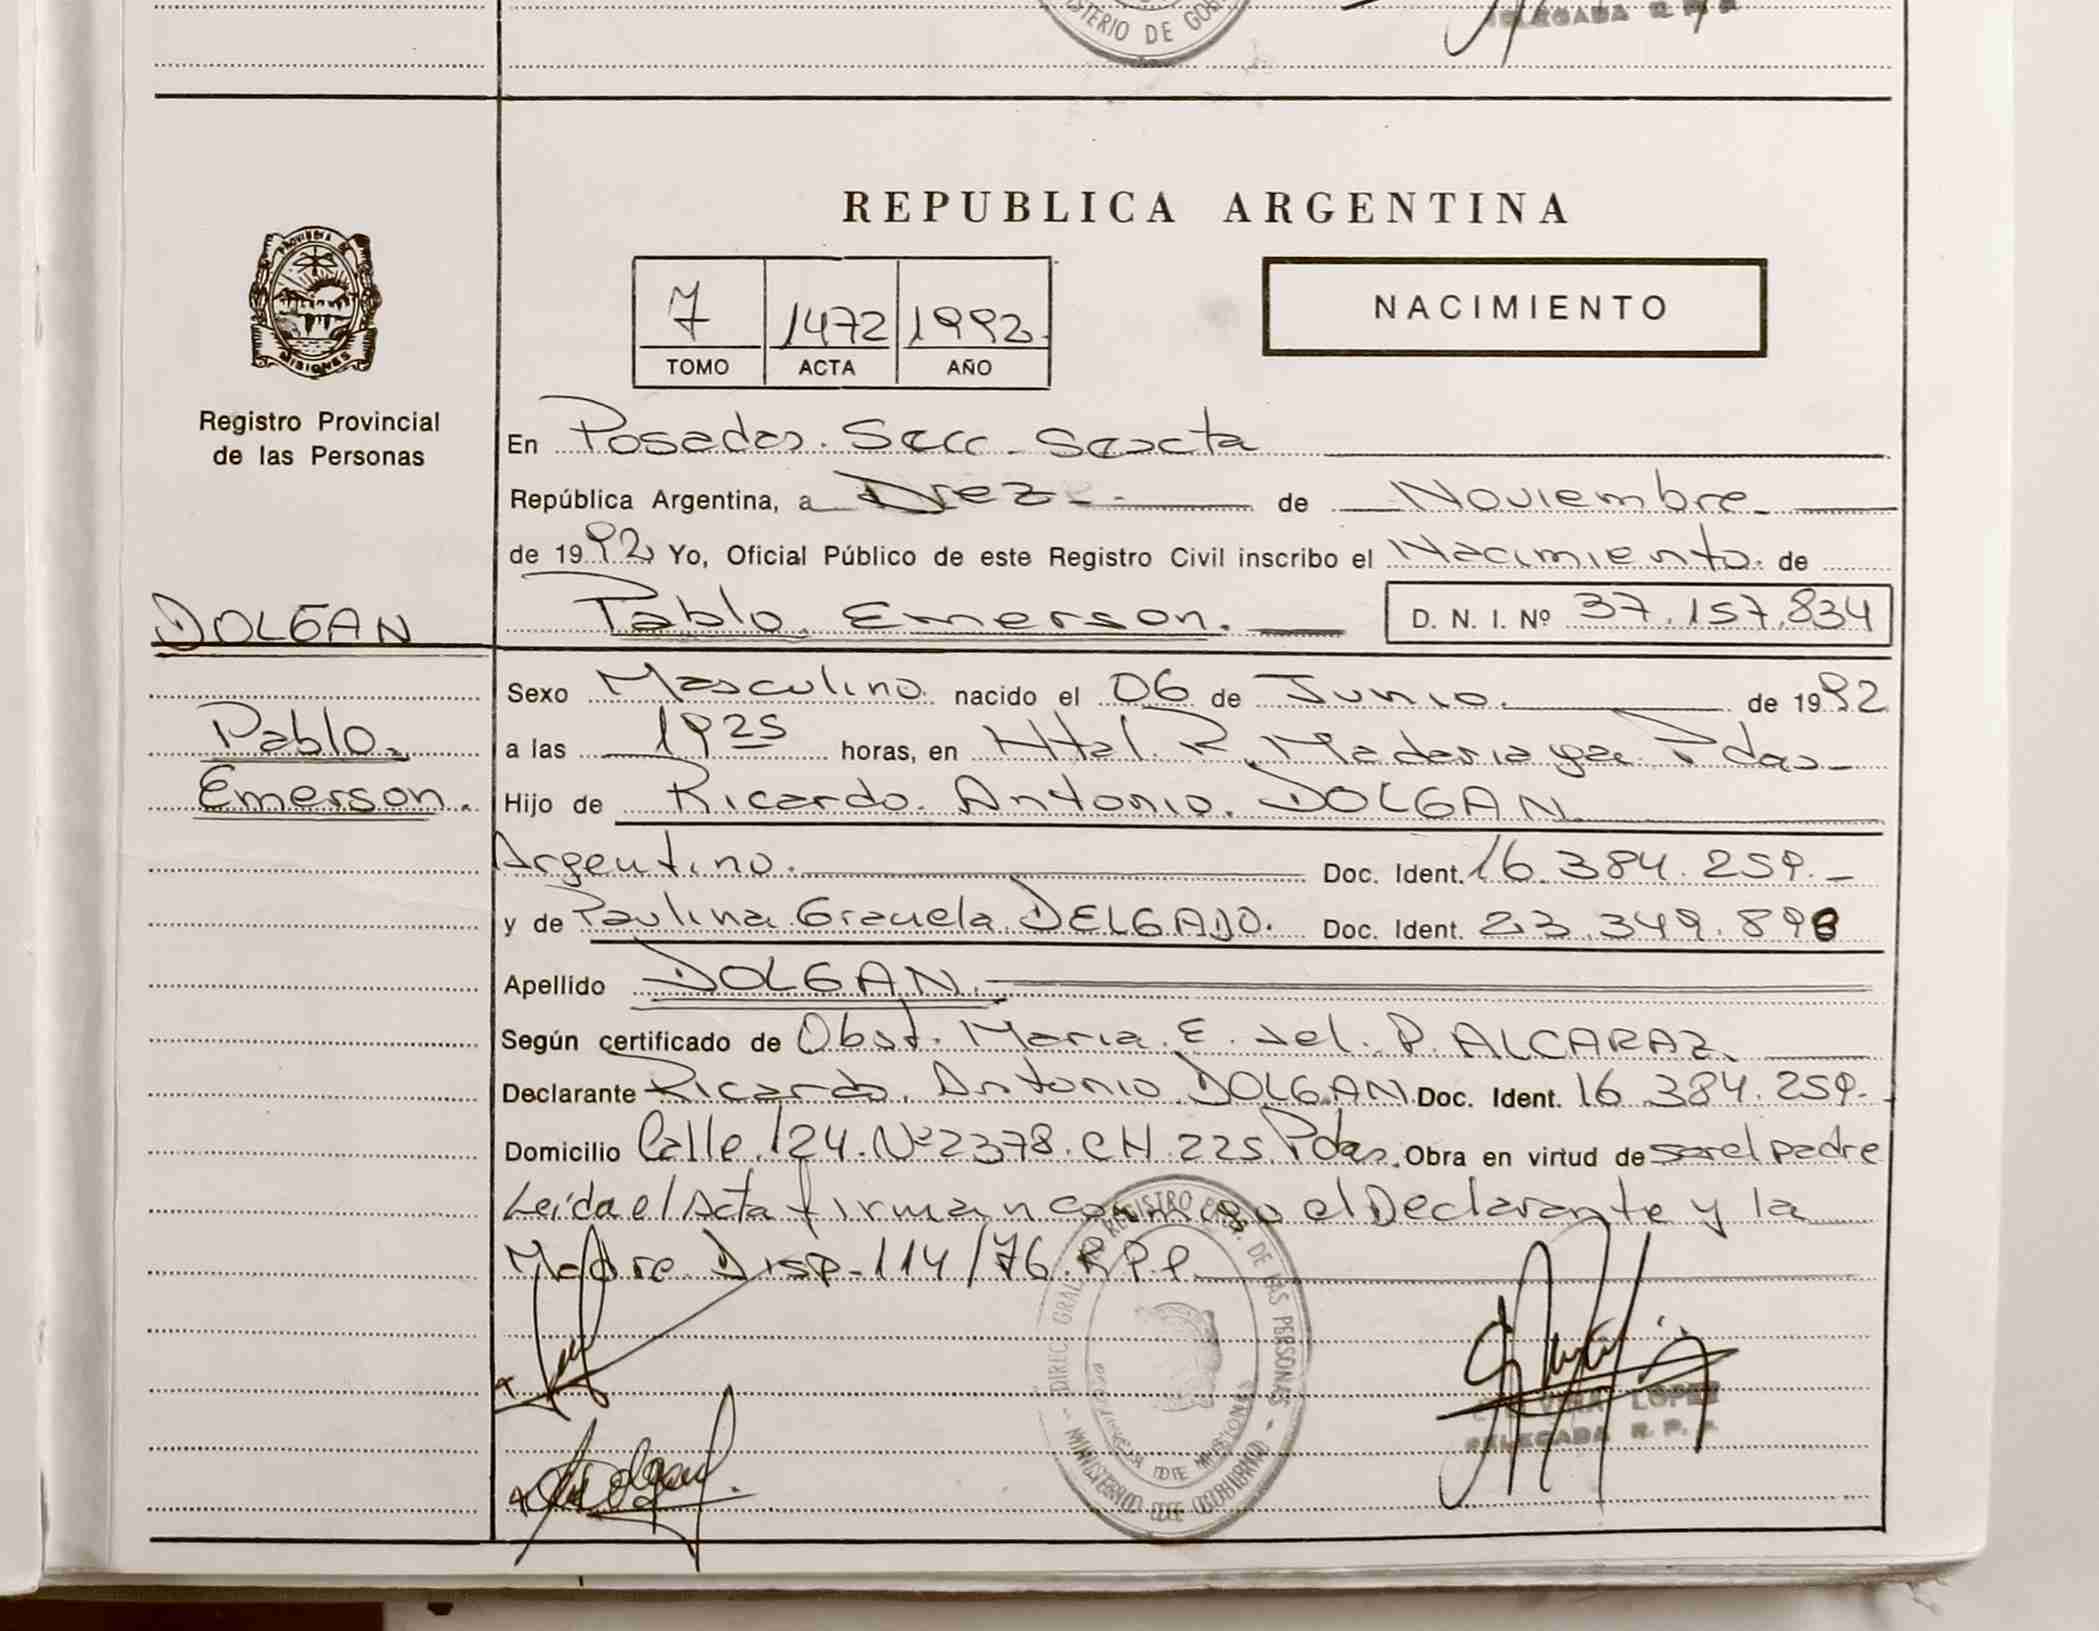 MINISTERIO DE GOB
DELEGADA R. P. P.
REPUBLICA ARGENTINA
PROVINCIA DE
MISIONES
Registro Provincial
de las Personas
7 1472 1992
TOMO ACTA AÑO
NACIMIENTO
En Posadas. Secc. Sexcta
República Argentina, a Diez de Noviembre
de 1992 Yo, Oficial Público de este Registro Civil inscribo el Nacimiento. de
DOLGAN
Pablo Emerson. D. N. I. Nº 37.157.834
Sexo Masculino. nacido el 06 de Junio. de 1992
Pablo.
a las 1925 horas, en Htal. R. Madariaga Pdas
Emerson.
Hijo de Ricardo. Antonio. DOLGAN
Argentino. Doc. Ident. 16.384.259.-
y de Paulina Graciela DELGADO. Doc. Ident. 23.349.898
Apellido DOLGAN.
Según certificado de Obst. Maria. E. del. P. ALCARAZ.
Declarante Ricardo. Antonio. DOLGAN. Doc. Ident. 16.384.259.-
Domicilio Calle. 124. Nº 2378. CH. 225. Pdas. Obra en virtud de ser el padre
Leída el Acta firman conmigo el Declarante y la
Madre Disp. 114/76. R.P.P.
DIREC. GRAL. DE REGISTRO PROV. DE LAS PERSONAS
PROVINCIA DE MISIONES
MINISTERIO DE GOBIERNO
LOPEZ
DELEGADA R. P. P.
Dolgan